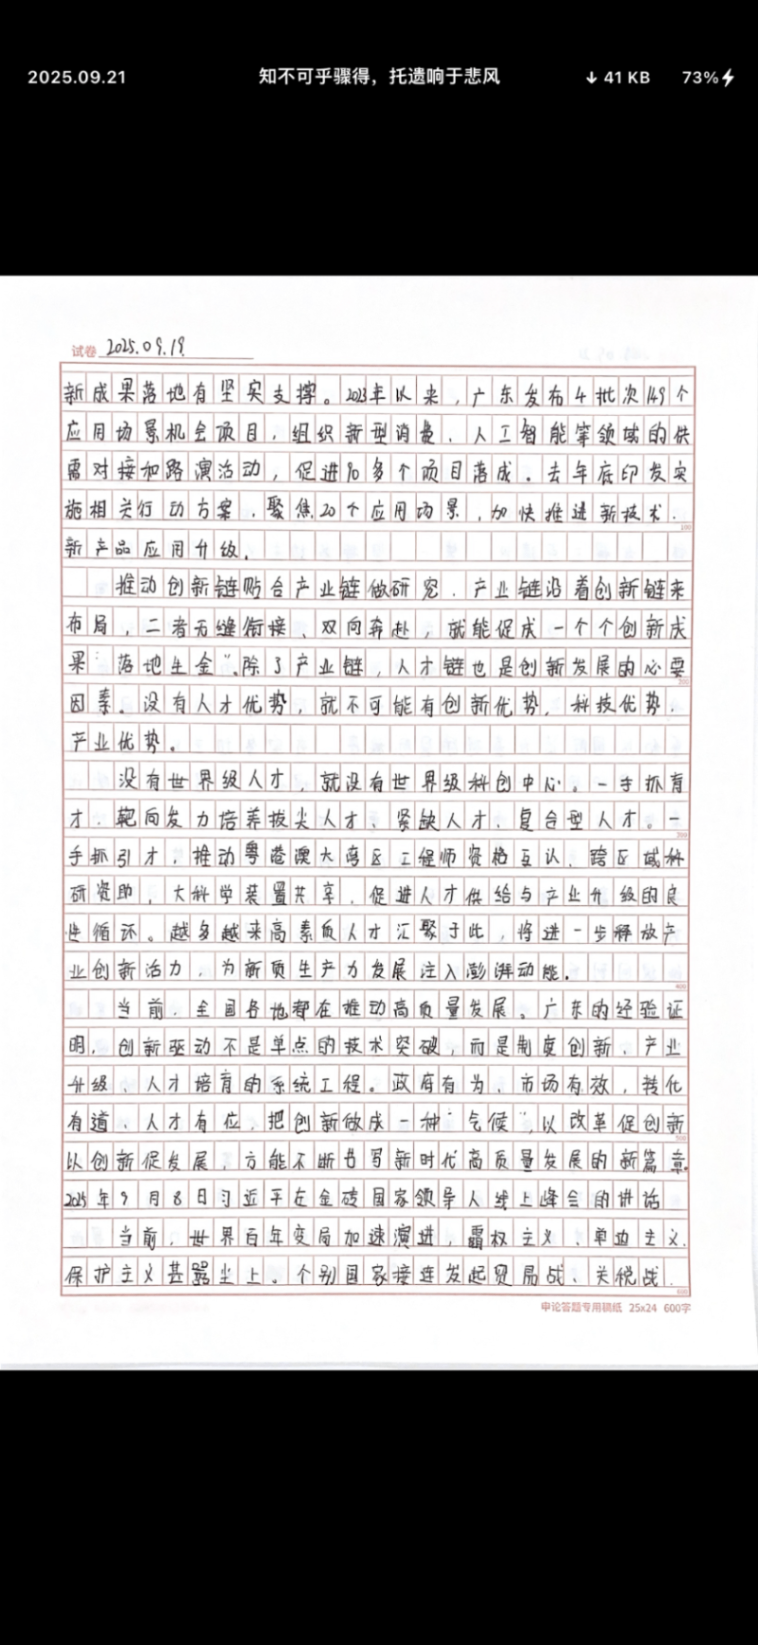 2025.09.21 知不可乎骤得，托遗响于悲风 ↓ 41 KB 73%
试卷 2025.09.19
新成果落地有坚实支撑。2023年以来，广东发布4批次149个
应用场景机会项目，组织新型消费、人工智能等领域的供
需对接和路演活动，促进90多个项目落成。去年底印发实
施相关行动方案，聚焦20个应用场景，加快推进新技术、
新产品应用升级。
推动创新链贴合产业链做研究、产业链沿着创新链来
布局，二者无缝衔接、双向奔赴，就能促成一个个创新成
果“落地生金”。除了产业链，人才链也是创新发展的必要
因素。没有人才优势，就不可能有创新优势、科技优势、
产业优势。
没有世界级人才，就没有世界级科创中心。一手抓育
才，靶向发力培养拔尖人才、紧缺人才、复合型人才。一
手抓引才，推动粤港澳大湾区工程师资格互认、跨区域科
研资助、大科学装置共享，促进人才供给与产业升级的良
性循环。越多越来高素质人才汇聚于此，将进一步释放产
业创新活力，为新质生产力发展注入澎湃动能。
当前，全国各地都在推动高质量发展。广东的经验证
明，创新驱动不是单点的技术突破，而是制度创新、产业
升级、人才培育的系统工程。政府有为、市场有效，转化
有道、人才有位，把创新做成一种“气候”，以改革促创新
以创新促发展，方能不断书写新时代高质量发展的新篇章。
2025年9月8日习近平在金砖国家领导人线上峰会的讲话
当前，世界百年变局加速演进，霸权主义、单边主义、
保护主义甚嚣尘上。个别国家接连发起贸易战、关税战、
申论答题专用稿纸 25x24 600字